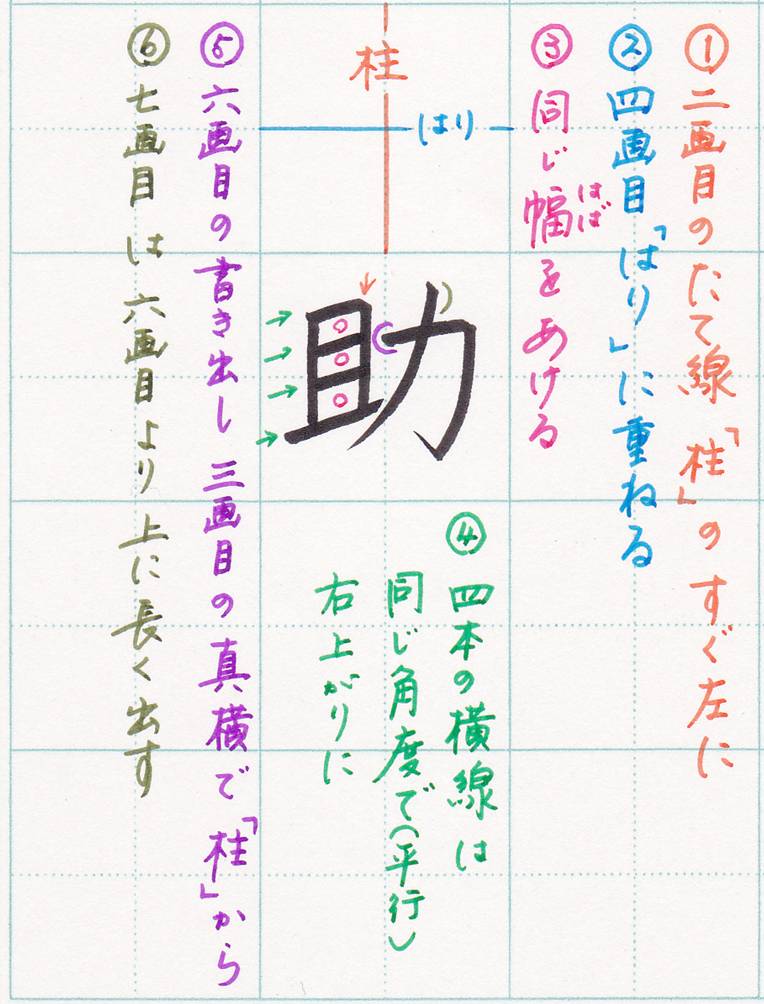 ① 二画目のたて線「柱」のすぐ左に
② 四画目「はり」に重ねる
③ 同じ幅をあける
はば
柱
はり
助
④ 四本の横線は
同じ角度で(平行)
右上がりに
⑤ 六画目の書き出し 三画目の真横で「柱」から
⑥ 七画目は六画目より上に長く出す